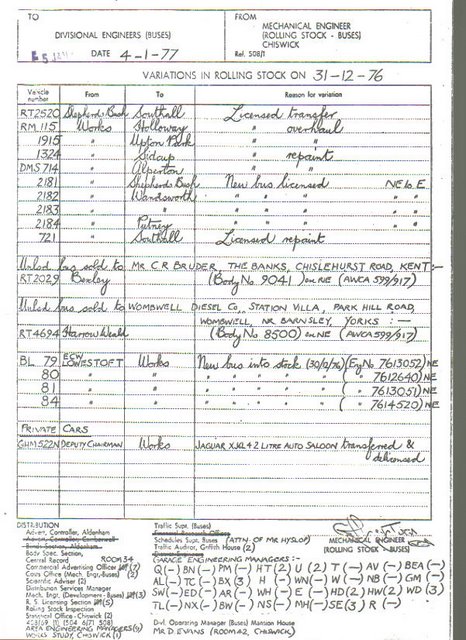 TO
FROM
DIVISIONAL ENGINEERS (BUSES)
MECHANICAL ENGINEER
(ROLLING STOCK - BUSES)
CHISWICK
DATE 4-1-77
Ref. 508/1
VARIATIONS IN ROLLING STOCK ON 31-12-76
Vehicle number From To Reason for variation
RT2520 Shepherds Bush Southall Licensed transfer
RM 115 Works Holloway " overhaul
1915 " Upton Park " "
1324 " Sidcup " repaint
DMS 714 " Alperton " "
2181 " Shepherds Bush New bus licensed NE to E.
2182 " Wandsworth " " " " "
2183 " " " " " " "
2184 " Putney " " " " "
721 " Southall Licensed repaint
Unlsd bus sold to MR C R BRUDER, THE BANKS, CHISLEHURST ROAD, KENT:-
RT2029 Bexley (Body No 9041) on NE (AWCA 599/917)
Unlsd bus sold to WOMBWELL DIESEL Co., STATION VILLA, PARK HILL ROAD,
WOMBWELL, NR BARNSLEY, YORKS :-
RT4694 Harrow Weald (Body No 8500) on NE (AWCA 599/917)
BL 79 ECW LOWESTOFT Works New bus into stock (30/12/76) (Eng No 7613052) NE
80 " " " " " " " ( " 7612640) NE
81 " " " " " " " ( " 7613051) NE
84 " " " " " " " ( " 7614520) NE
PRIVATE CARS
GHM 522N DEPUTY CHAIRMAN Works JAGUAR XJ6L 4.2 LITRE AUTO SALOON transferred &
delicensed
DISTRIBUTION
Adver. Controller, Aldenham
Body Spec. Section,
Central Record ROOM 34
Commercial Advertising Officer (7)
Costs Office (Mech. Engr-Buses) (2)
Scientific Adviser (2)
Distribution Services Manager
Mech. Engr. (Development - Buses) (3)
R. S. Licensing Section (5)
Rolling Stock Inspection
Stationery Dept - Chiswick (2)
AREA ENGINEERING MANAGERS
WORKS STUDY, CHISWICK (1)
Traffic Supr. (Buses)
Financial Research Officer
Schedules Supr. Buses (ATTN. OF MR HYSLOP)
Traffic Auditor, Griffith House (2)
MECHANICAL ENGINEER
(ROLLING STOCK - BUSES)
GARAGE ENGINEERING MANAGERS :-
Q(-) BN(-) PM(-) HT(2) U(2) T(-) AV(-) BEA(-)
AL(-) TC(-) BX(3) H(-) WN(-) W(-) NB(-) GM(-)
SW(-) ED(-) AR(-) WH(-) E(-) HD(2) HW(2) WD(3)
TL(-) NX(-) BW(-) NS(-) MH(-) SE(3) R(-)
Divl. Operating Manager (Buses) Mansion House
MR D EVANS (ROOM A2, CHISWICK)